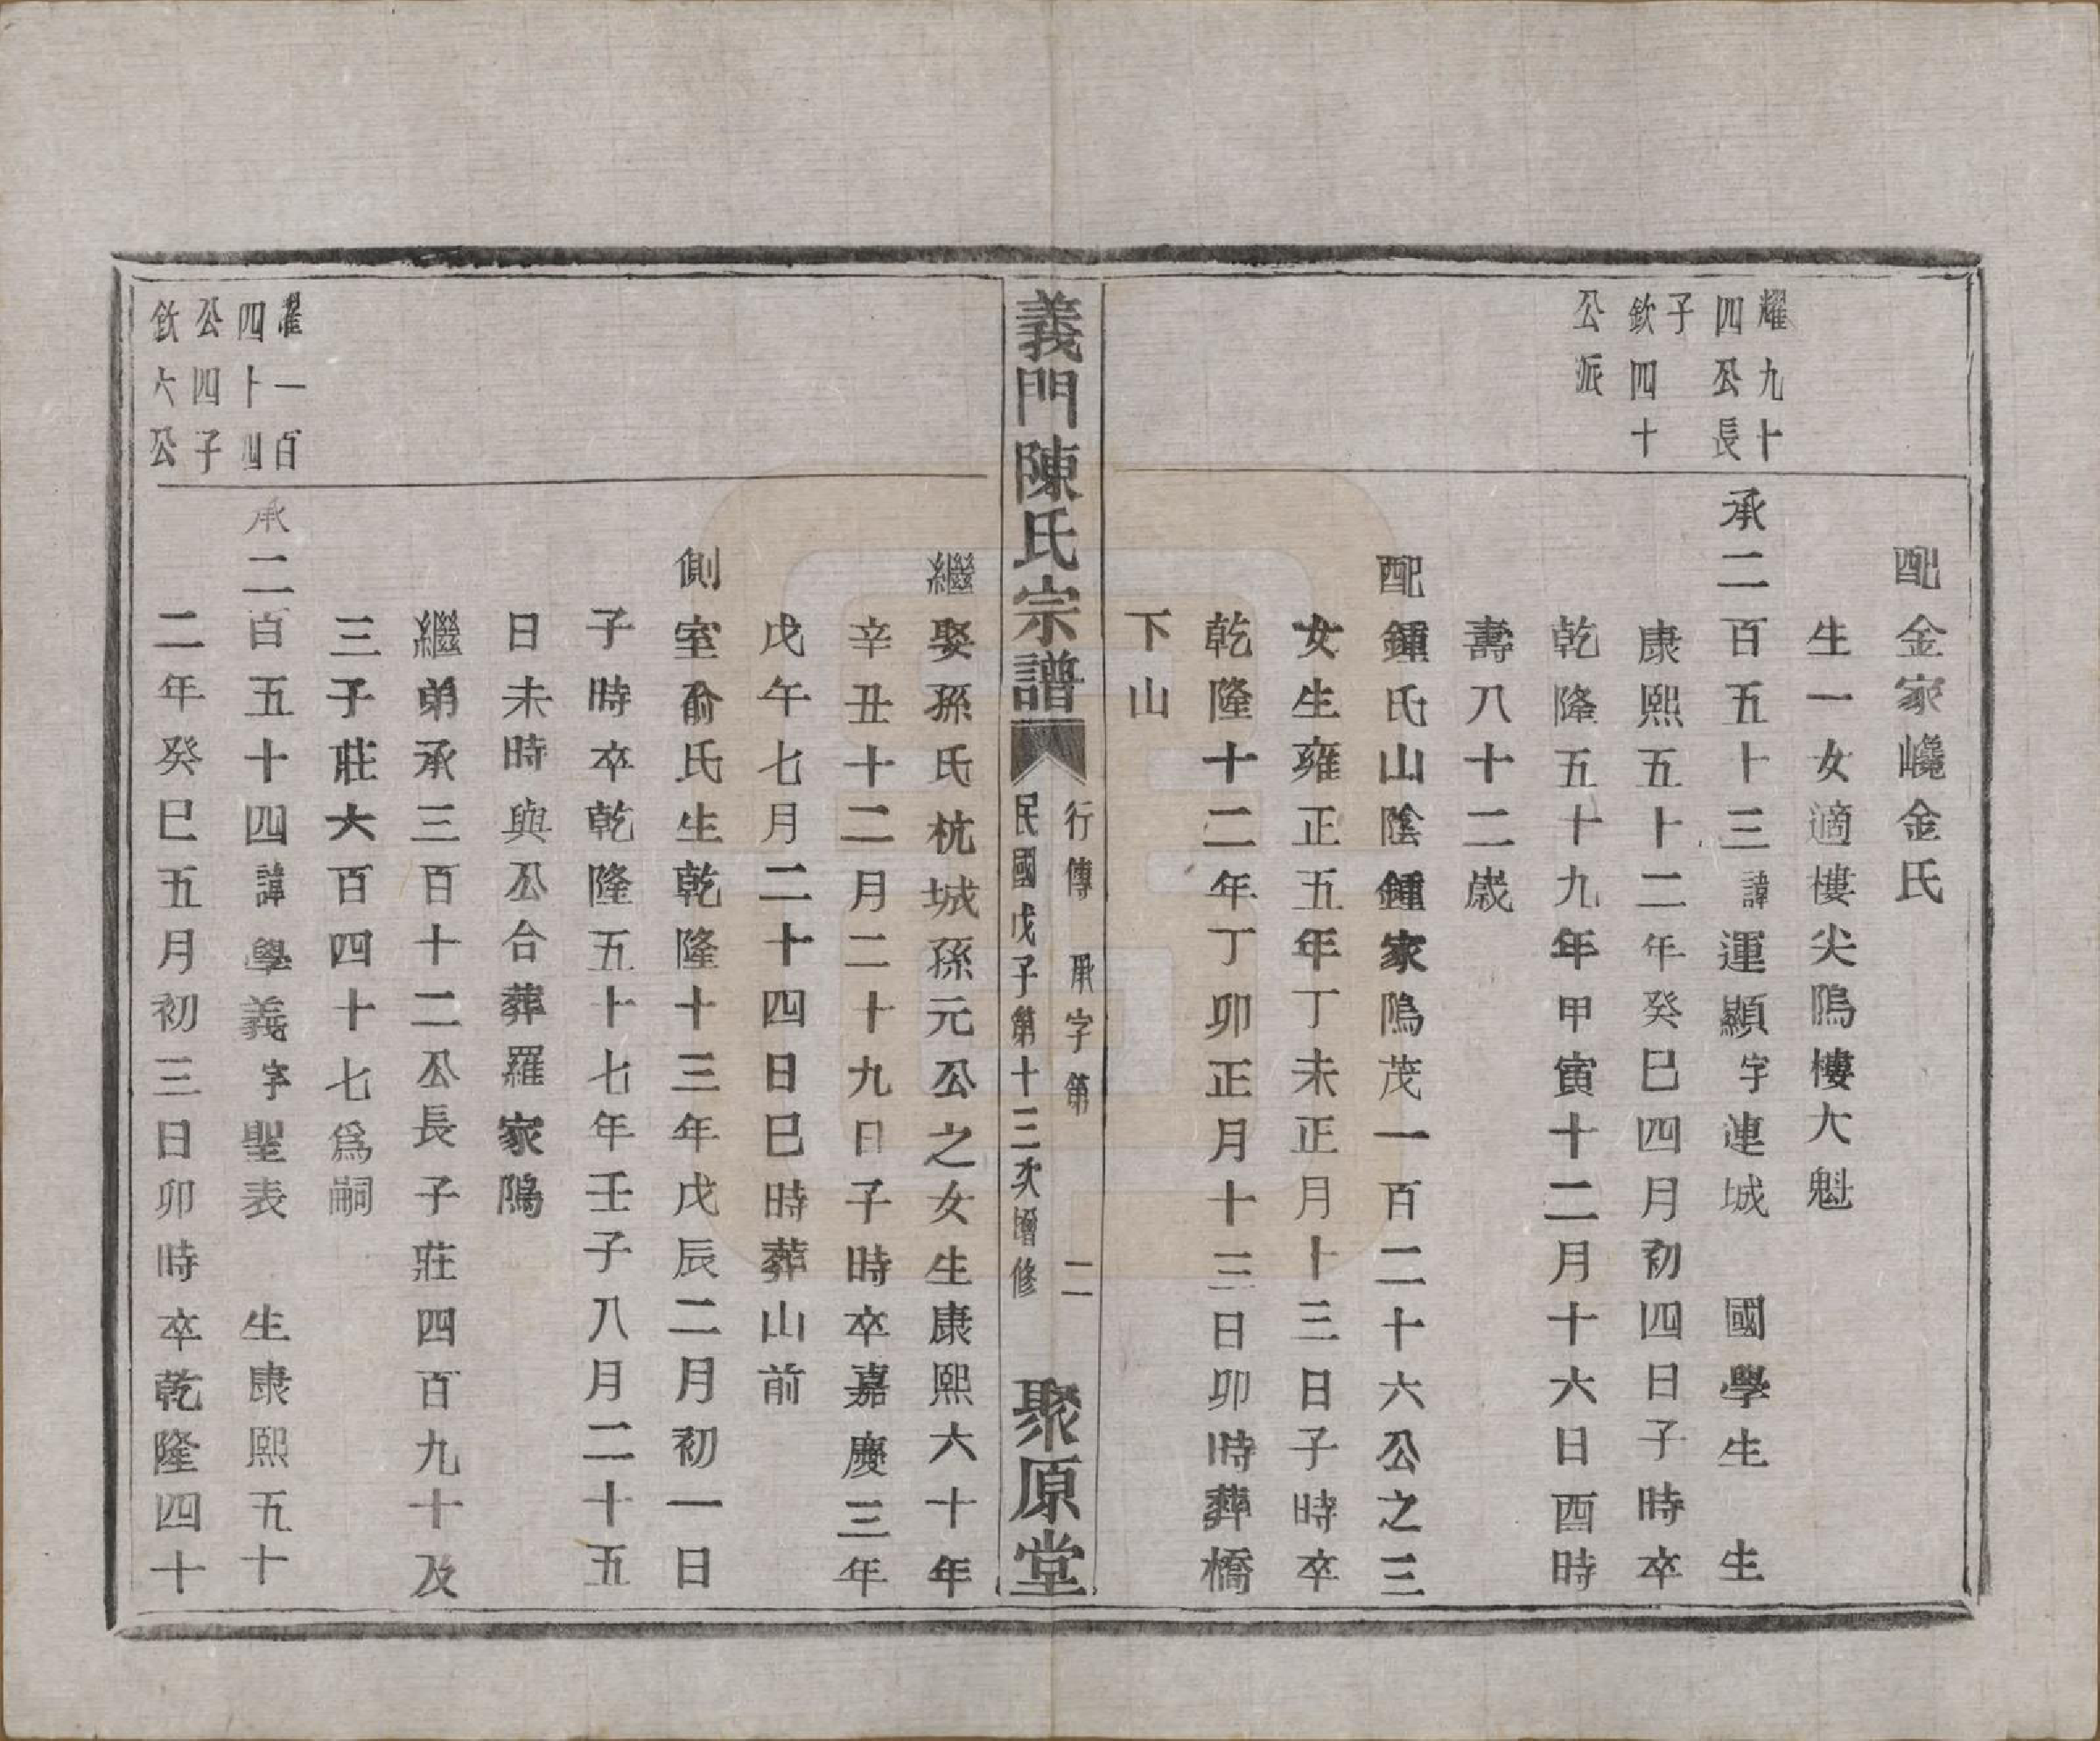 配金家巉金氏
生一女適樓尖隖樓大魁
耀九十
四公長
子
欽四十
公派
承二百五十三諱運顯字連城　國學生　生
康熙五十二年癸巳四月初四日子時卒
乾隆五十九年甲寅十二月十六日酉時
壽八十二歲
配鍾氏山陰鍾家隖茂一百二十六公之三
女生雍正五年丁未正月十三日子時卒
乾隆十二年丁卯正月十三日卯時葬橋
下山
義門陳氏宗譜
行傳　承字第　二
民國戊子第十三次增修
聚原堂
繼娶孫氏杭城孫元公之女生康熙六十年
辛丑十二月二十九日子時卒嘉慶三年
戊午七月二十四日巳時葬山前
側室俞氏生乾隆十三年戊辰二月初一日
子時卒乾隆五十七年壬子八月二十五
日未時與公合葬羅家隖
繼弟承三百十二公長子莊四百九十及
三子莊六百四十七爲嗣
耀一百
四十四
公四子
欽六公
承二百五十四諱學義字聖表　生康熙五十
二年癸巳五月初三日卯時卒乾隆四十